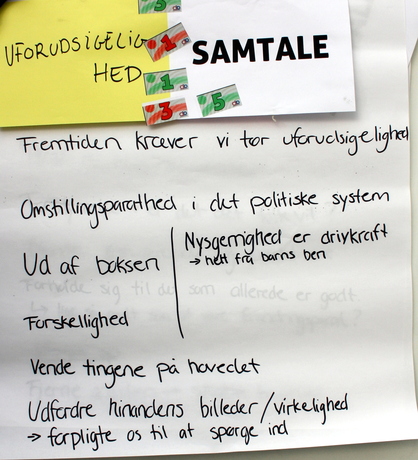 UFORUDSIGELIG
HED
SAMTALE
5
1
1
3
5
Fremtiden kræver vi tør uforudsigelighed
Omstillingsparathed i det politiske system
Ud af boksen
Nysgerrighed er drivkraft
→ helt fra barns ben
Forskellighed
Vende tingene på hovedet
Udfordre hinandens billeder/virkelighed
→ forpligte os til at spørge ind